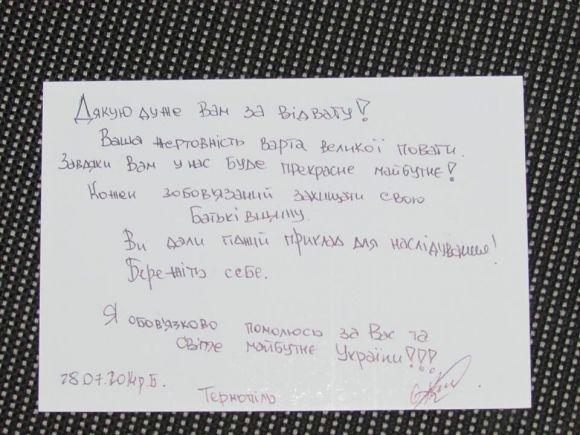 Дякую дуже Вам за відвагу!
Ваша жертовність варта великої поваги.
Завдяки Вам у нас буде прекрасне майбутнє!
Кожен зобов'язаний захищати свою
Батьківщину.
Ви дали гідний приклад для наслідування!
Бережіть себе.
Я обов'язково помолюсь за Вас та
світле майбутнє України!!!
28.07.2014р.Б.
Тернопіль